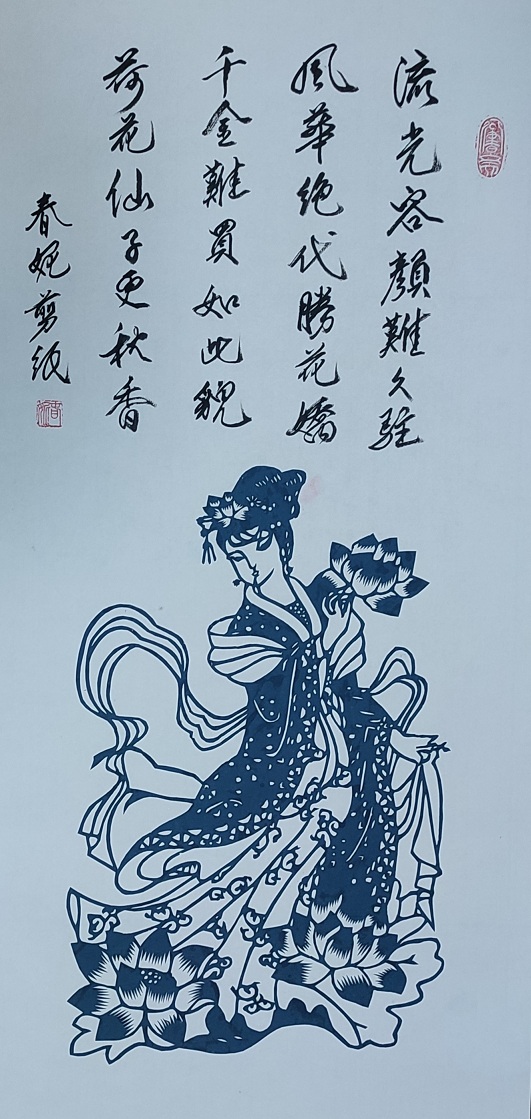 流光容顏難久駐
風華绝代勝花嬌
千金難買如此貌
荷花仙子更秋香
春妮剪纸